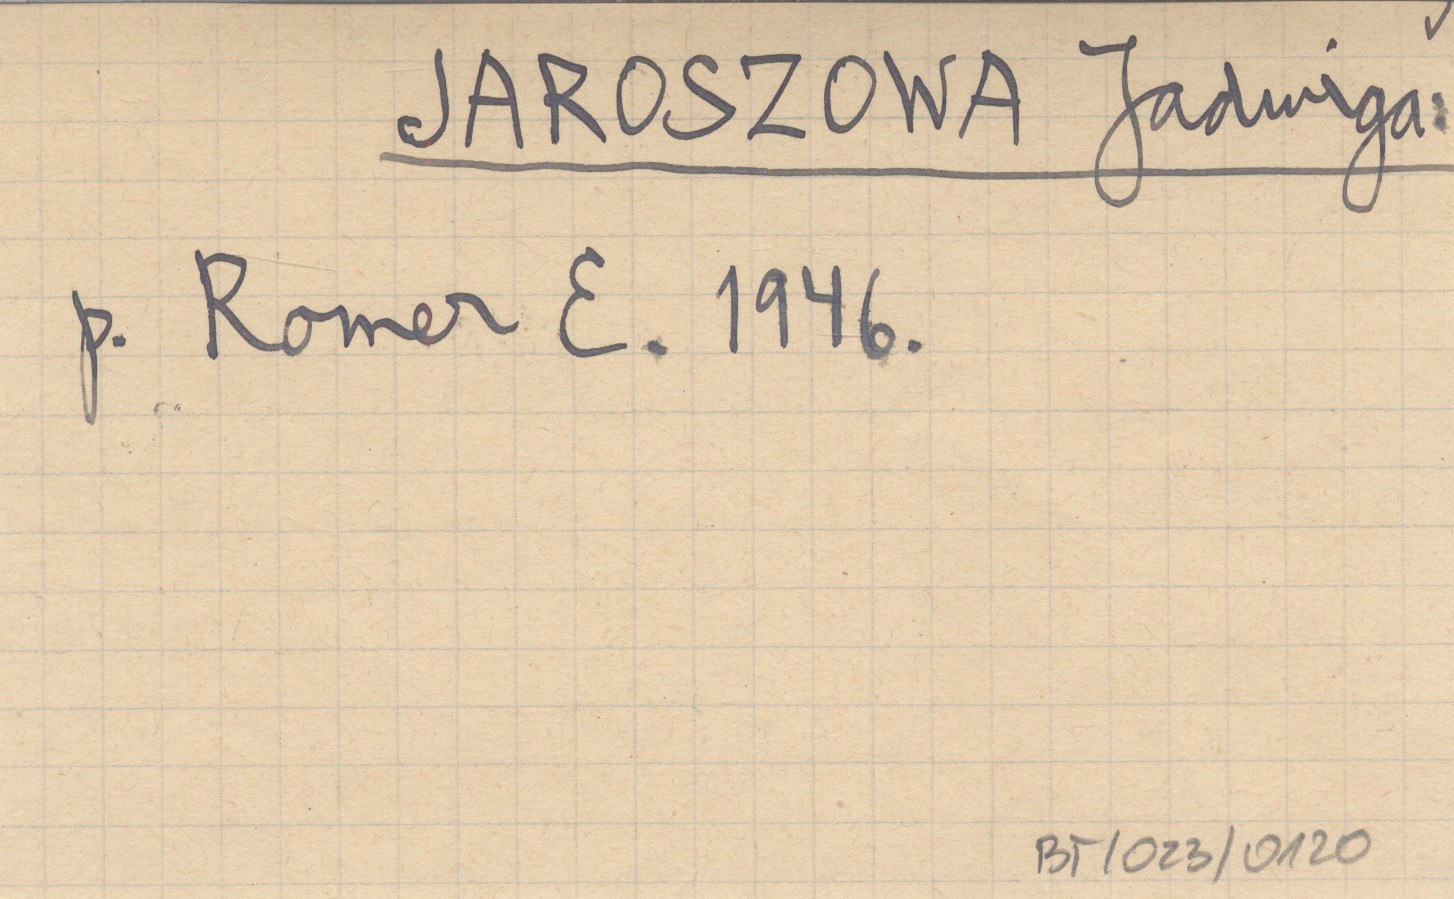 JAROSZOWA Jadwiga:
p. Romer E. 1946.
BT/023/0120